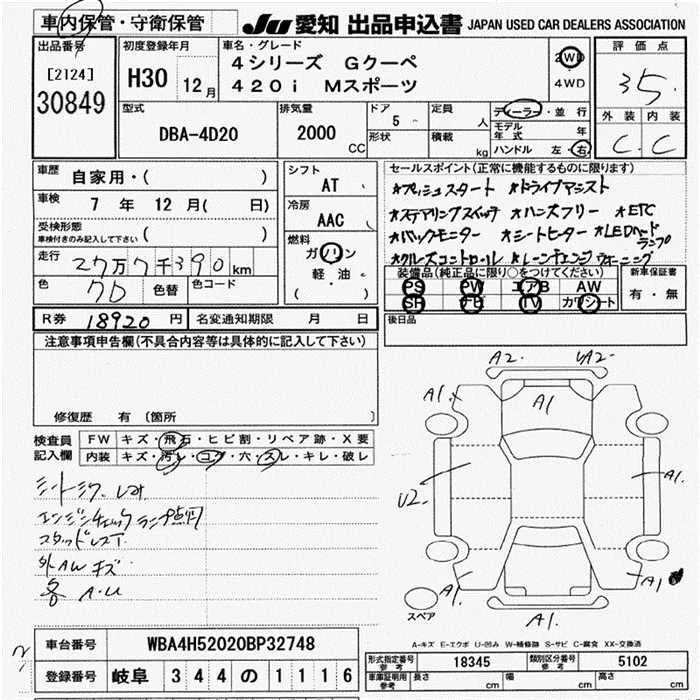 車内保管・守衛保管
JU 愛知 出品申込書 JAPAN USED CAR DEALERS ASSOCIATION
出品番号
[2124]
30849
初度登録年月
H30 12月
車名・グレード
4シリーズ Gクーペ
420i Mスポーツ
2WD
4WD
評価点
3.5
外装 内装
C. C
型式
DBA-4D20
排気量
2000 CC
ドア
5
形状
定員
人
積載
kg
ディーラー・並行
モデル年式 年
ハンドル 左・右
車歴
自家用・( )
車検
7年 12月( 日)
受検形態
車検付きのみ記入して下さい ( )
走行
27万7千390km
色
色替
色コード
シフト
AT
冷房
AAC
燃料
ガソリン
軽・油
( )
セールスポイント(正常に機能するものに限ります)
*プッシュスタート *ドライブアシスト
*ステアリングスイッチ *ハンズフリー *ETC
*バックモニター *シートヒーター *LEDヘッドランプ
*クルーズコントロール *レーンチェンジウォーニング
装備品(純正品に限り○をつけてください)
PS PW エアB AW
SR ナビ TV カワシート
新車保証書
有・無
R券 18920円
名変通知期限 月 日
後日品
注意事項申告欄(不具合内容等は具体的に記入して下さい)
修復歴 有 〔箇所 〕
検査員記入欄
FW キズ・飛石・ヒビ割・リペア跡・X要
内装 キズ・汚レ・コゲ・穴・スレ・キレ・破レ
エンジンチェックランプ点灯
スタッドレス
外AW キズ
各 A.U
A2. A2
A1.
A1
U2
A1.
A1.
A1
A1.
スペア
A-キズ E-エクボ U-凹み W-補修跡 S-サビ C-腐食 XX-交換済
車台番号 WBA4H52020BP32748
登録番号 岐阜 344 の 1116
形式指定番号 参考 18345
類別区分番号 参考 5102
車庫証明用 参考 長さ cm 幅 cm 高さ cm